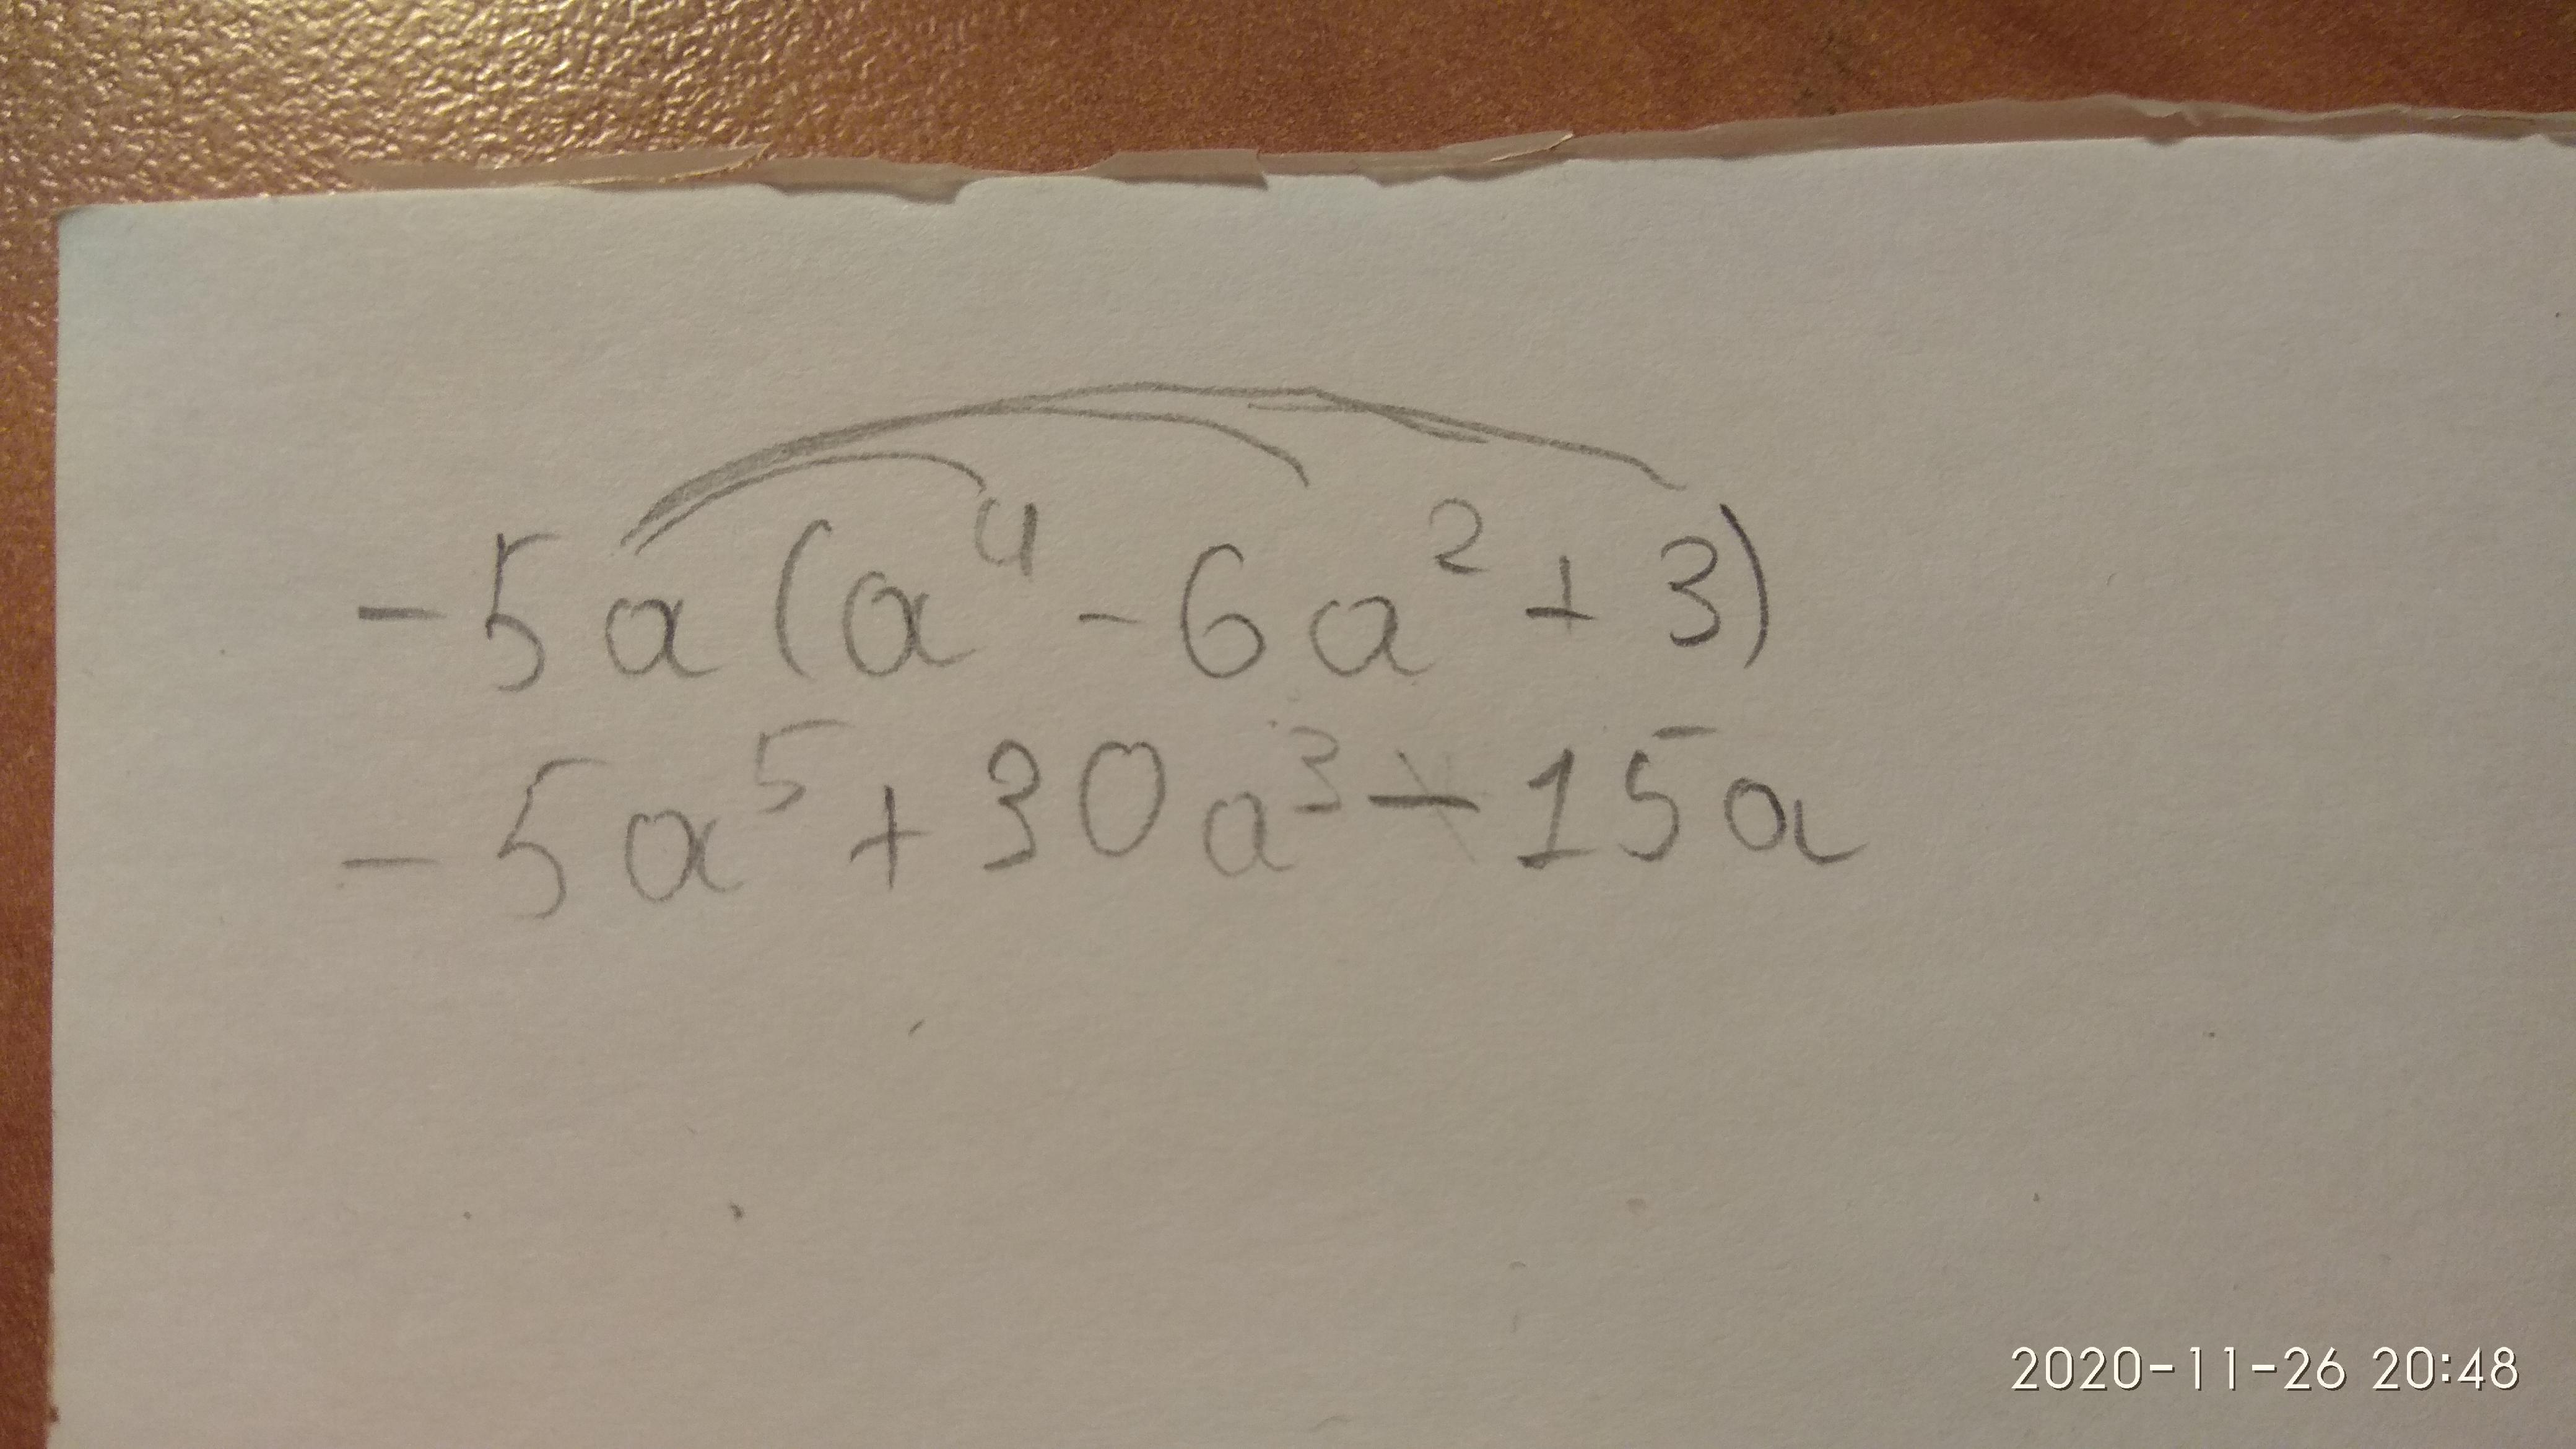 -5a(a⁴-6a²+3)
-5a⁵+30a³-15a
2020-11-26 20:48